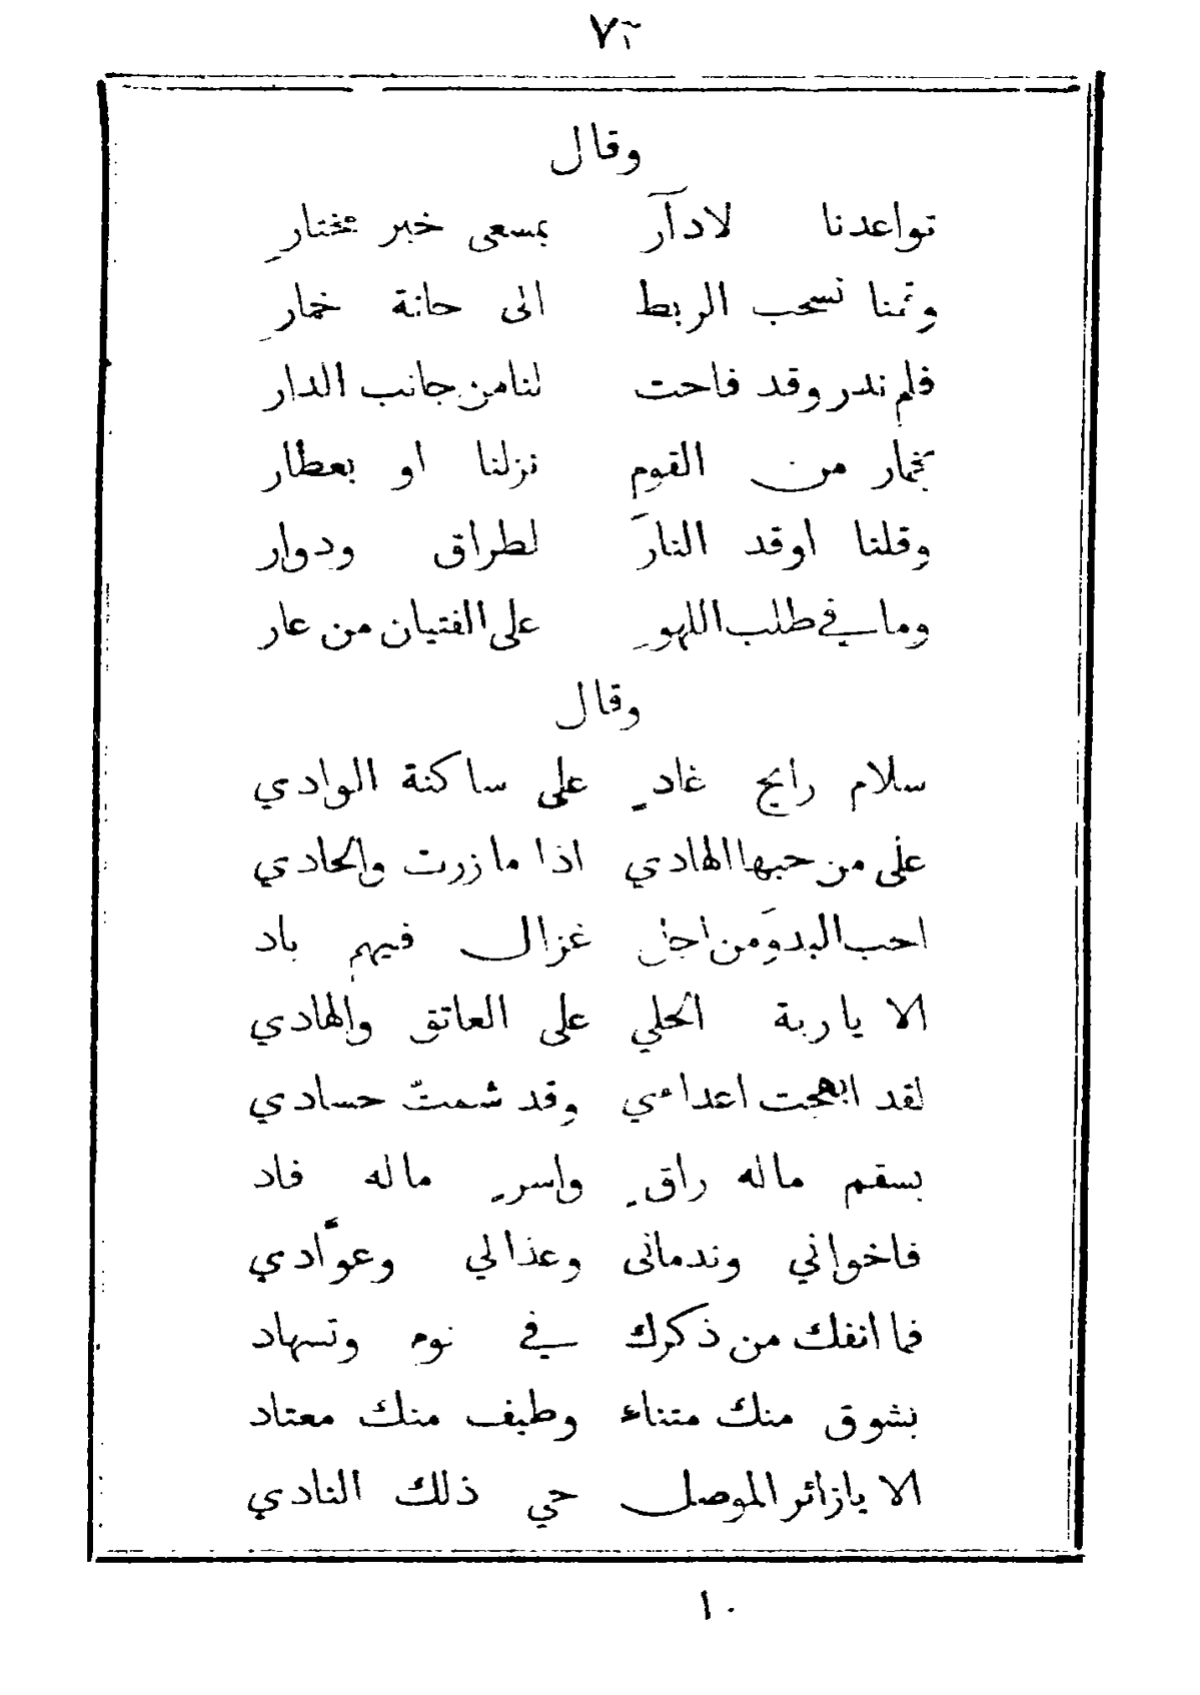 وقال
تواعدنا لادآرَ بمسعى خبر مختارِ
وقمنا نسحب الريط الى حانة خمارِ
فلم ندر وقد فاحت لنا من جانب الدار
بخمار من القوم نزلنا او بعطار
وقلنا اوقد النارَ لطراق ودوار
وما في طلب اللهوِ على الفتيان من عار
وقال
سلام رايح غادٍ على ساكنة الوادي
على من حبها الهادي اذا ما زرت والحادي
احب البدوَ من اجل غزال فيهم باد
الا يا ربة الحلي على العاتق والهادي
لقد ابهجت اعداءي وقد شمتّ حسادي
بسقم ماله راقٍ واسرٍ ماله فاد
فاخواني وندمانى وعذالي وعوَّادي
فما انفك من ذكرك في نوم وتسهاد
بشوق منك متناء وطيف منك معتاد
الا يا زائر الموصل حي ذلك النادي
١٠